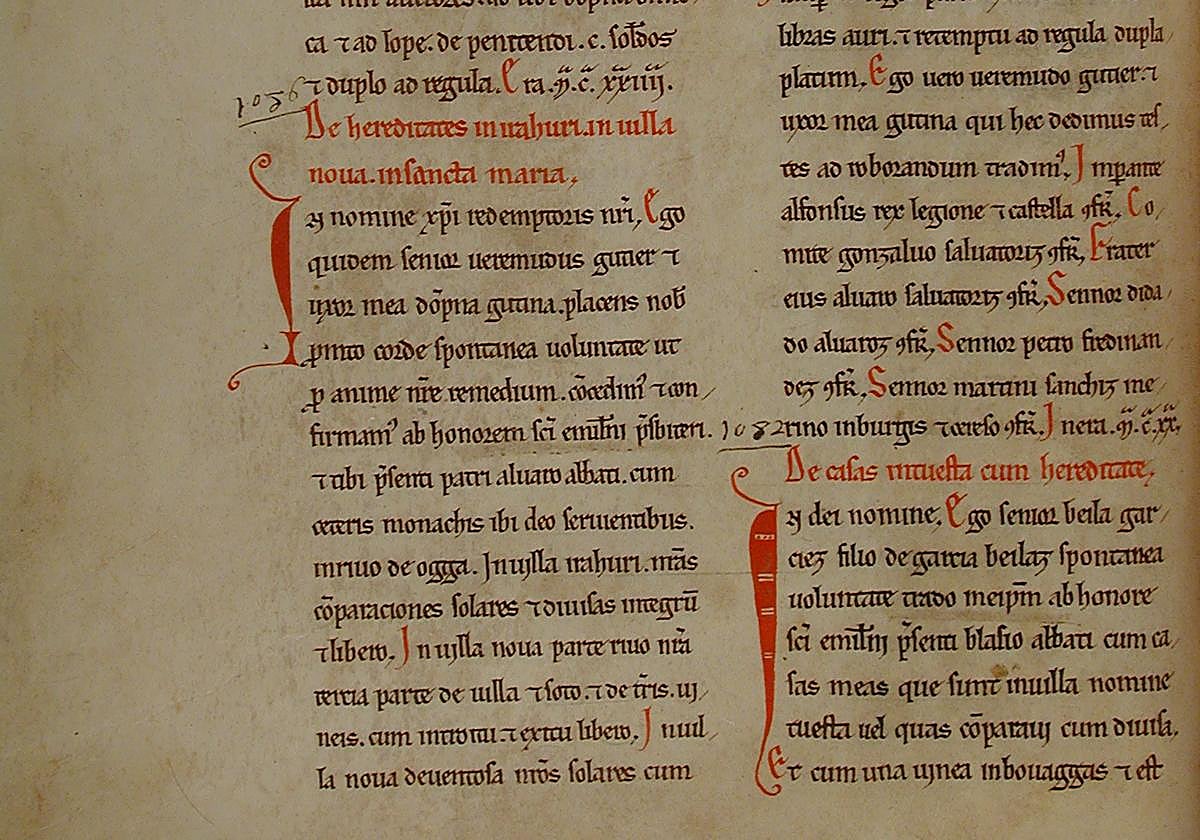 ca ⁊ ad lope. de penitendi. c. solidos
⁊ duplo ad regula. Era. m̃. c̃. xxiiii.
1086
De hereditates in irahuri. in uilla
noua. in sancta maria.
In nomine xp̃i redemptoris nr̃i, Ego
quidem senior ueremudus gutier ⁊
uxor mea dõpna gutina. placens nob̃
p̱mto corde spontanea uoluntate ut
p̱ anime nr̃e remedium. cõcedimꝰ ⁊ con
firmamꝰ ab honorem sc̃i emilĩani p̃sbiteri.
⁊ tibi p̃senti patri aluaro abbati. cum
ceteris monachis ibi deo seruientibus.
in riuo de ogga. In uilla irahuri. nr̃as
cõparaciones solares ⁊ diuisas integrũ
⁊ libero. In uilla noua parte riuo nr̃a
tercia parte de uilla ⁊ soto. ⁊ de tr̃is. ui
neis. cum introitu. ⁊ exitu libero. In uil
la noua deuentosa nr̃os solares cum
libras auri. ⁊ retemptu ad regula dupla
platum. Ego uero ueremudo gutier. ⁊
uxor mea gutina qui hec dedimus tes
tes ad roborandum tradimꝰ. Imperante
alfonsus rex legione ⁊ castella ꝯfr̃. Co
mite gonzaluo saluatoriz ꝯfr̃. Frater
eius aluaro saluatoriz ꝯfr̃. Sennor dida
do aluaroz ꝯfr̃. Sennor petro fredinan
dez ꝯfr̃. Sennor martini sanchiz me
1082
rino in burgis ⁊ cereso ꝯfr̃. In era. m̃. c̃. xx.
De casas in tuesta cum hereditate.
In dei nomine. Ego senior beila gar
ciez filio de garcia beilaz spontanea
uoluntate trado meip̃m ab honore
sc̃i emilĩani p̃senti blasio abbati cum ca
sas meas que sunt in uilla nomine
tuesta uel quas cõparaui cum diuisa.
Et cum una uinea in bouaggas ⁊ est